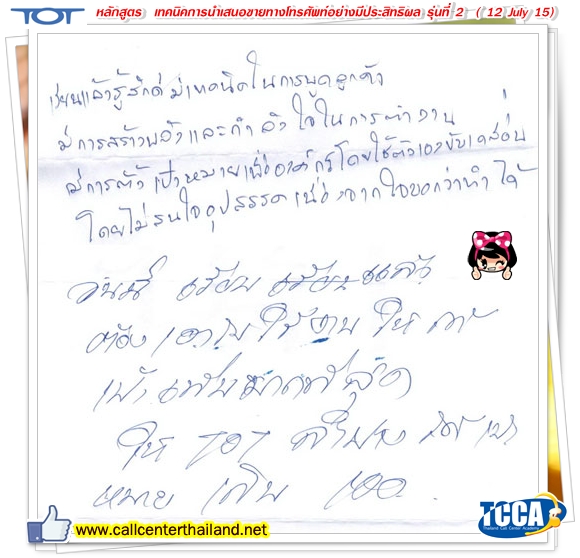 TOT หลักสูตร เทคนิคการนำเสนอขายทางโทรศัพท์อย่างมีประสิทธิผล รุ่นที่ 2 ( 12 July 15)
เรียนแล้วรู้สึกดี มีเทคนิคในการพูดลูกค้า
มีการสร้างพลังและกำลังใจในการทำงาน
มีการตั้งเป้าหมายเพื่อองค์กรโดยใช้ตัวเองขับเคลื่อน
โดยไม่สนใจอุปสรรคเนื่องจากใจบอกว่าทำได้
วันนี้ เรียน
ต้อง เอาไปใช้งาน ให้
ให้ TOT
หมาย เกิน 100
www.callcenterthailand.net
TCCA
Thailand Call Center Academy